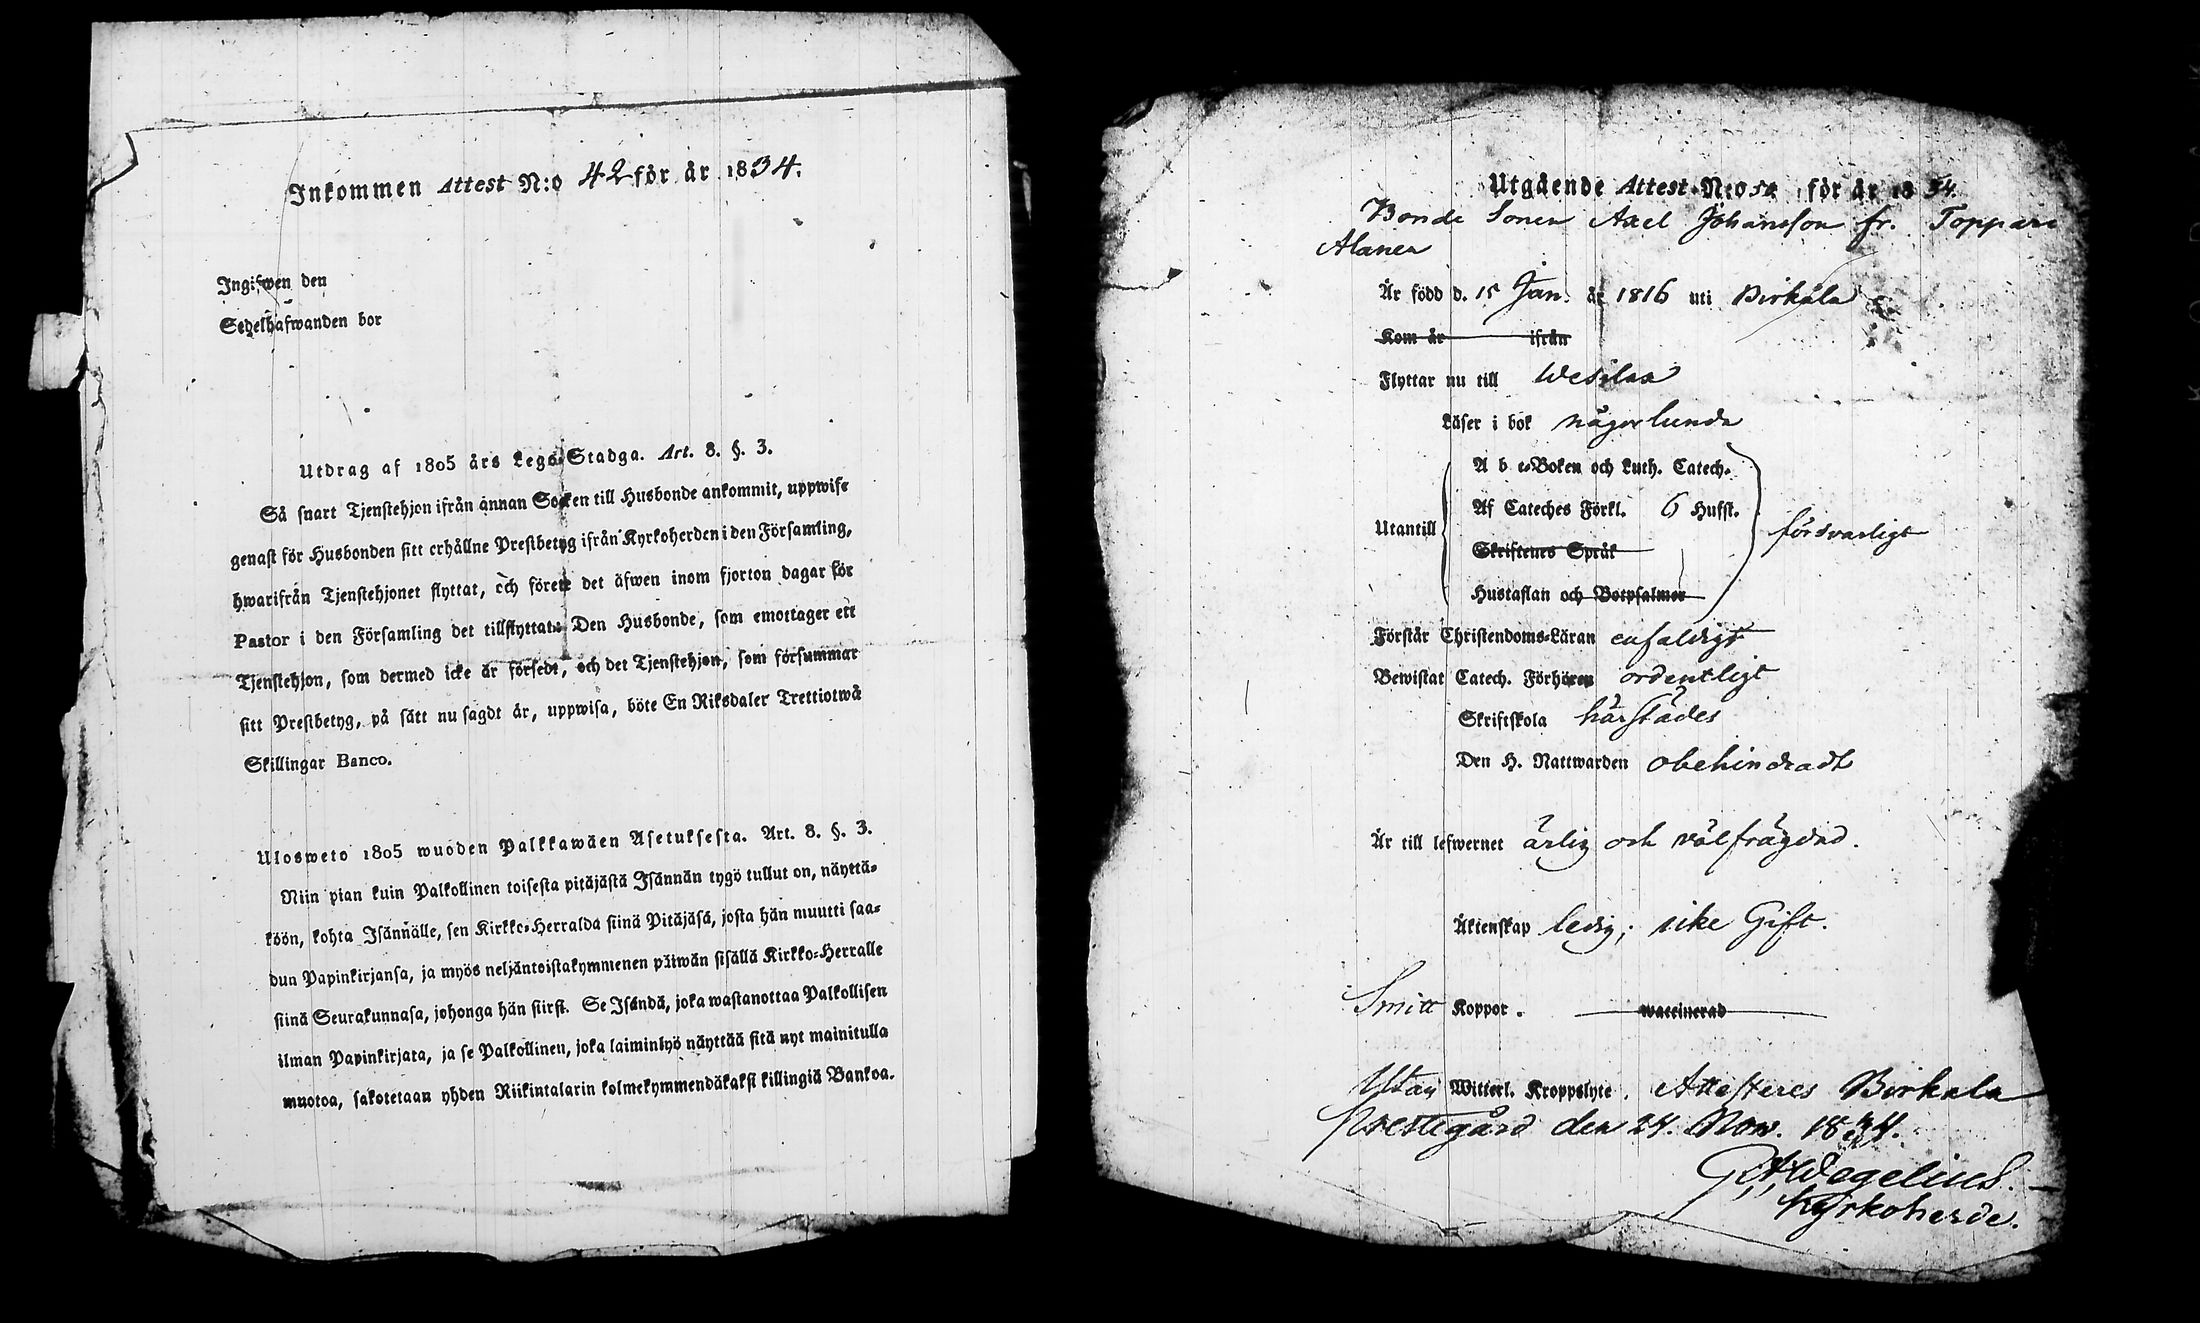 Inkommen Attest N:o 42 för år 1834.
Ingifwen den
Sedelhafwanden bor
Utdrag af 1805 års Lego-Stadga. Art. 8. §. 3.
Så snart Tjenstehjon ifrån annan Socken till Husbonde ankommit, uppwise
genast för Husbonden sitt erhållne Prestbetyg ifrån Kyrkoherden i den Församling,
hwarifrån Tjenstehjonet flyttat, och förete det äfwen inom fjorton dagar för
Pastor i den Församling det tillflyttat. Den Husbonde, som emottager ett
Tjenstehjon, som dermed icke är försedt, och det Tjenstehjon, som försummar
sitt Prestbetyg, på sätt nu sagdt är, uppwisa, böte En Riksdaler Trettiotwå
Skillingar Banco.
Ulosweto 1805 wuoden Palkkawäen Asetuksesta. Art. 8. §. 3.
Niin pian kuin Palkollinen toisesta pitäjästä Isännän tygö tullut on, näyttä-
köön, kohta Isännälle, sen Kirkko-Herralda siinä Pitäjäsä, josta hän muutti saa-
dun Papinkirjansa, ja myös neljäntoistakymmenen päiwän sisällä Kirkko-Herralle
siinä Seurakunnasa, johonga hän siirsi. Se Isändä, joka wastanottaa Palkollisen
ilman Papinkirjata, ja se Palkollinen, joka laiminlyö näyttää sitä nyt mainitulla
muotoa, sakotetaan yhden Riikintalarin kolmekymmendäkaksi killingiä Bankoa.
Utgående Attest N:o 52 för år 1834.
Bonde Sonen Axel Johansson fr. Toppari
Alanen
Är född d. 15 Jan. år 1816 uti Birkala
Kom år ifrån
Flyttar nu till Wesilax
Läser i bok någorlunda
A b c-Boken och Luth. Catech.
Af Cateches Förkl. 6 Hufst.
Utantill försvarligt
Skriftenes Språk
Hustaflan och Botpsalmer
Förstår Christendoms-Läran enfaldigt
Bewistat Catech. Förhören ordentligt
Skriftskola härstädes
Den H. Nattwarden obehindradt
Är till lefwernet ärlig och välfrägdad.
Äktenskap ledig; icke Gift.
Smitt Koppor. waccinerad
Utan Witterl. Kroppslyte. Attesteres Birkala
Prestegård den 24. Nov. 1834.
Wegelius.
Kyrkoherde.